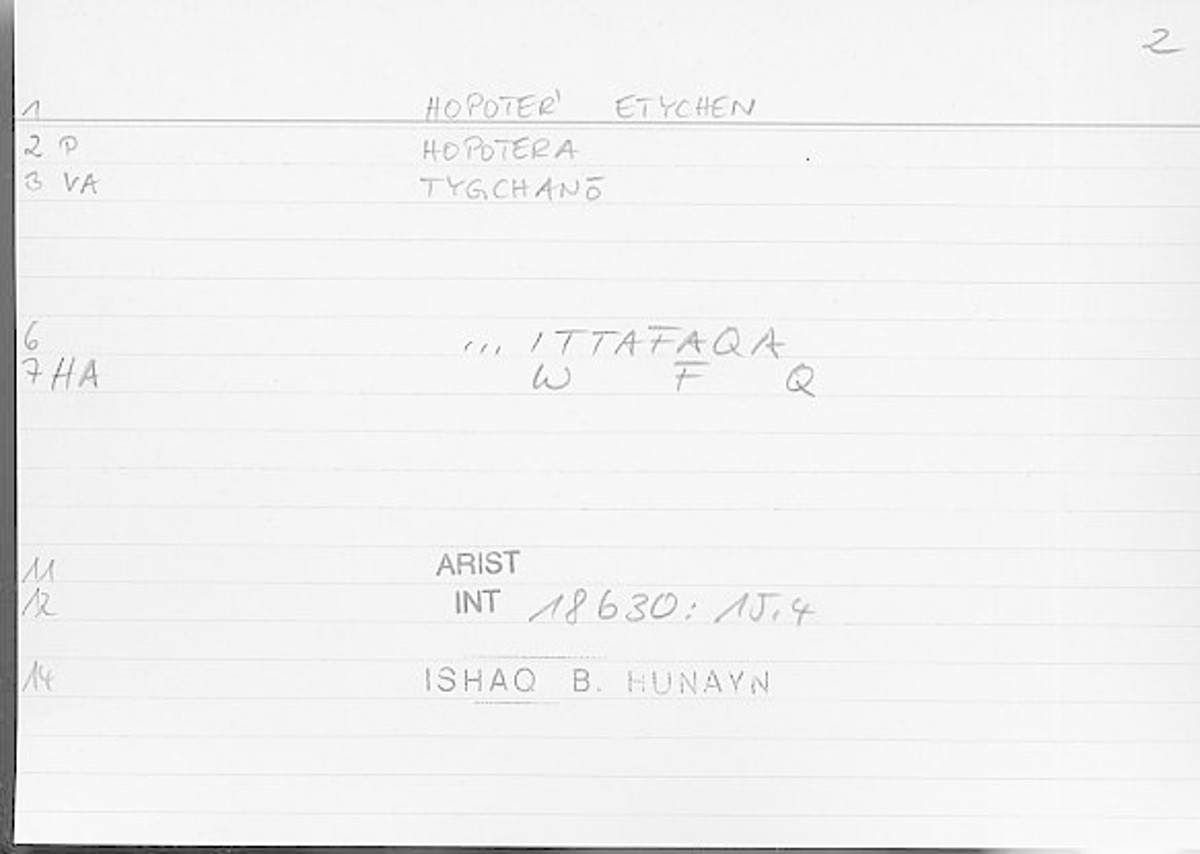 2
1 HOPOTER' ETYCHEN
2 P HOPOTERA
3 VA TYGCHANŌ
6 ,,, ITTAF̅A̅QA
7 HA W F̅ Q
11 ARIST
12 INT 18630: 15.4
14 ISHAQ B. HUNAYN